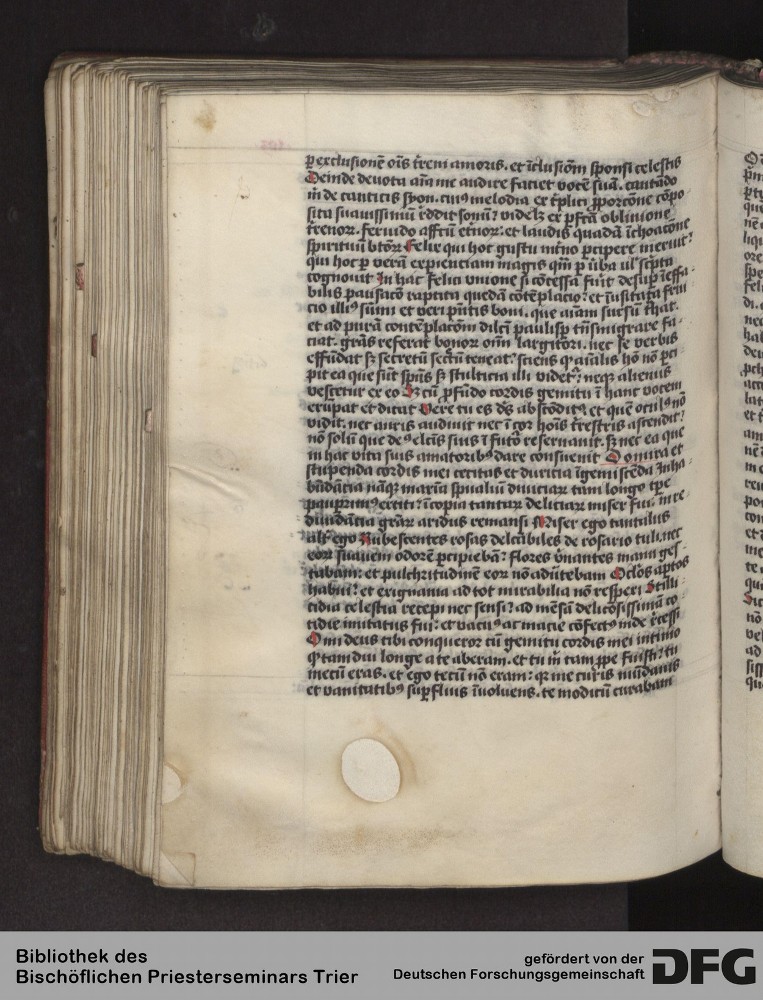 ꝑ exclusionē oīs t̄reni amoris. et īclusiōm sponsi celestis
Deinde deuota aīa me audire faciet vocē suā. cantādo
m̄ de canticis syon. cuiꝰ melodia ex t̄plici ꝓporcōne cōpo
sita suauissimū r̄ddit sonū? videlꝫ ex ꝑfcā obliuione
t̄renoꝝ. feruido affectū et̄noꝝ: et laudis quadā īchoacōne
spirituū btōꝝ Felix qui hoc gustu int̄no ꝑcipere meruit?
qui hoc ꝑ verā experienciam magis qm̄ ꝑ v̄ba ul' sc̄pta
cognouit In hac felici vnione si cōcessa fu̅it desuꝑ ieffa-
bilis pausacō raptita quedā cōtēplacio? et īusitata frui
cio illiꝰ sūmi et veri
et ad purā contēplacōm dilcī paulisꝑ tn̄smigrare fa-
ciat. grās referat bonoꝝ oīm largitori. nec se verbis
effūdat sꝫ secretū secū teneat? sciens ꝙ aīalis hō nō ꝑci
pit ea que sūt spūs sꝫ stulticia illi videt᷑? neqꝫ alienus
vescetur ex eo Sꝫ cū ꝓfūdo cordis gemitu ī hanc vocem
erūpat et dicat Vere tu es dꝰs abscōditꝰ. et quē oculꝰ nō
vidit. nec auris audiuit nec ī cor hoīs t̄restris ascendit?
nō solū que de elcīs suis ī futo reseruauit. sꝫ nec ea que
in hac vita suis amatoribꝰ dare consueuit O mira et
stupenda cordis mei cecitas et duricia īgemiscēda Inha-
būdācia nāqꝫ maxīa spūaliū diuiciaꝝ tam longo tꝑe
pauꝑrimꝰ extiti? īcopia tantaꝝ deliciaꝝ miser fui. in re-
dūdācia grāꝝ aridus remansi Miser ego tantalus
alt̄ ego Rubescentes rosas delcābiles de rosario tuli. nec
eoꝝ suauem odorē ꝑcipiebā? flores v̄nantes manu ges-
tabam: et pulchritudinē eoꝝ nō adūtebam Oclōs aptos
habui? et exignania ad tot mirabilia nō resꝑexi Stilli-
cidia celestia recepi nec sensi? ad mēsā delicōsissimā co
tidie inuitatus fui: et vacuꝰ ac macie cōfectꝰ inde r̄cessi
O mi deus tibi conqueror cū gemitu cordis mei intimo
ꝙ tam diu longe a te aberam. et tu m̄ tam ꝓpe fuisti? tu
mecū eras. et ego tecū nō eram: qꝛ me curis mūdanis
et vanitatibꝰ suꝑfluis īuoluens. te modicū curabam
Bibliothek des
Bischöflichen Priesterseminars Trier
gefördert von der
Deutschen Forschungsgemeinschaft
DFG